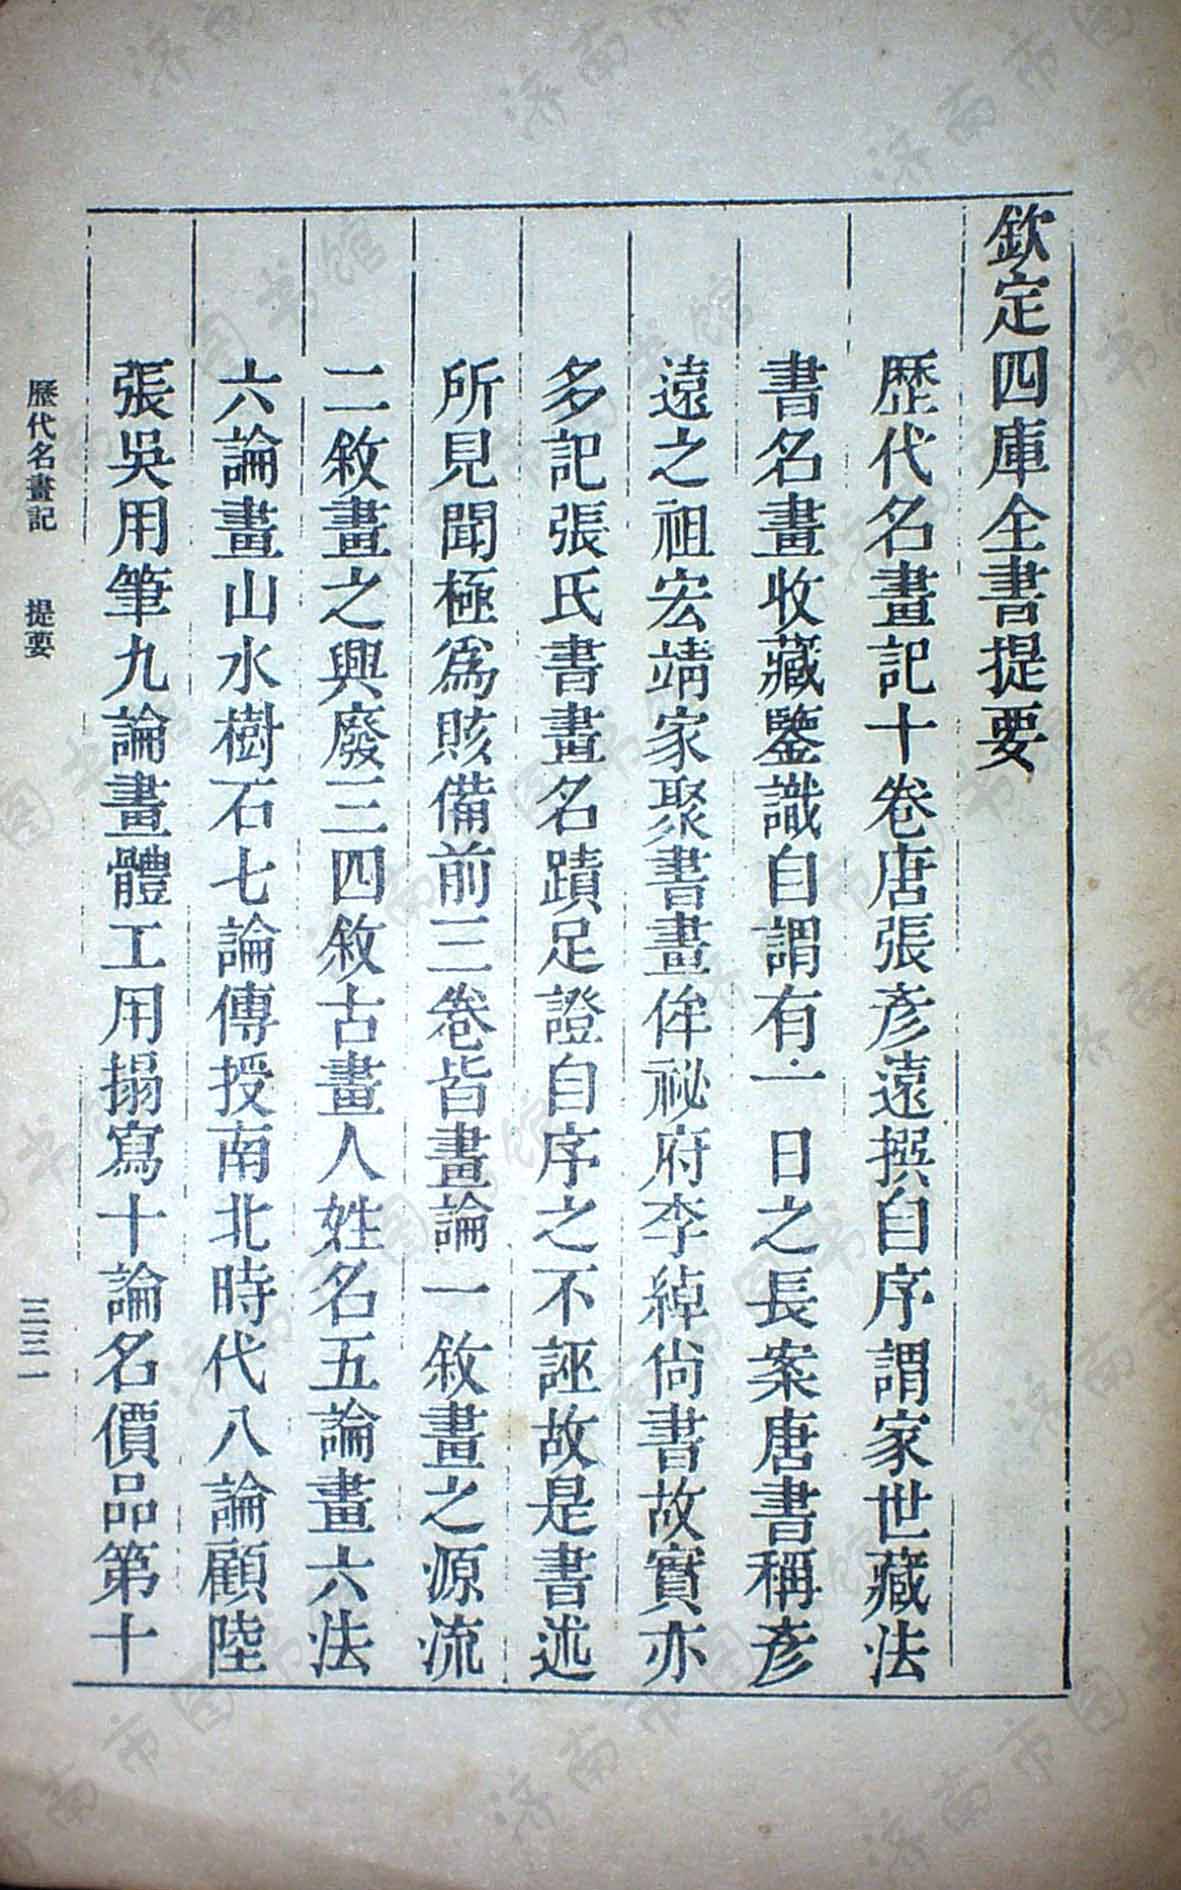 欽定四庫全書提要
歷代名畫記十卷唐張彥遠撰自序謂家世藏法
書名畫收藏鑒識自謂有一日之長案唐書稱彥
遠之祖宏靖家聚書畫侔祕府李綽尙書故實亦
多記張氏書畫名蹟足證自序之不誣故是書述
所見聞極爲賅備前三卷皆畫論一敘畫之源流
二敘畫之興廢三四敘古畫人姓名五論畫六法
六論畫山水樹石七論傳授南北時代八論顧陸
張吳用筆九論畫體工用搨寫十論名價品第十
歷代名畫記 提要 三三一
济南市图书馆